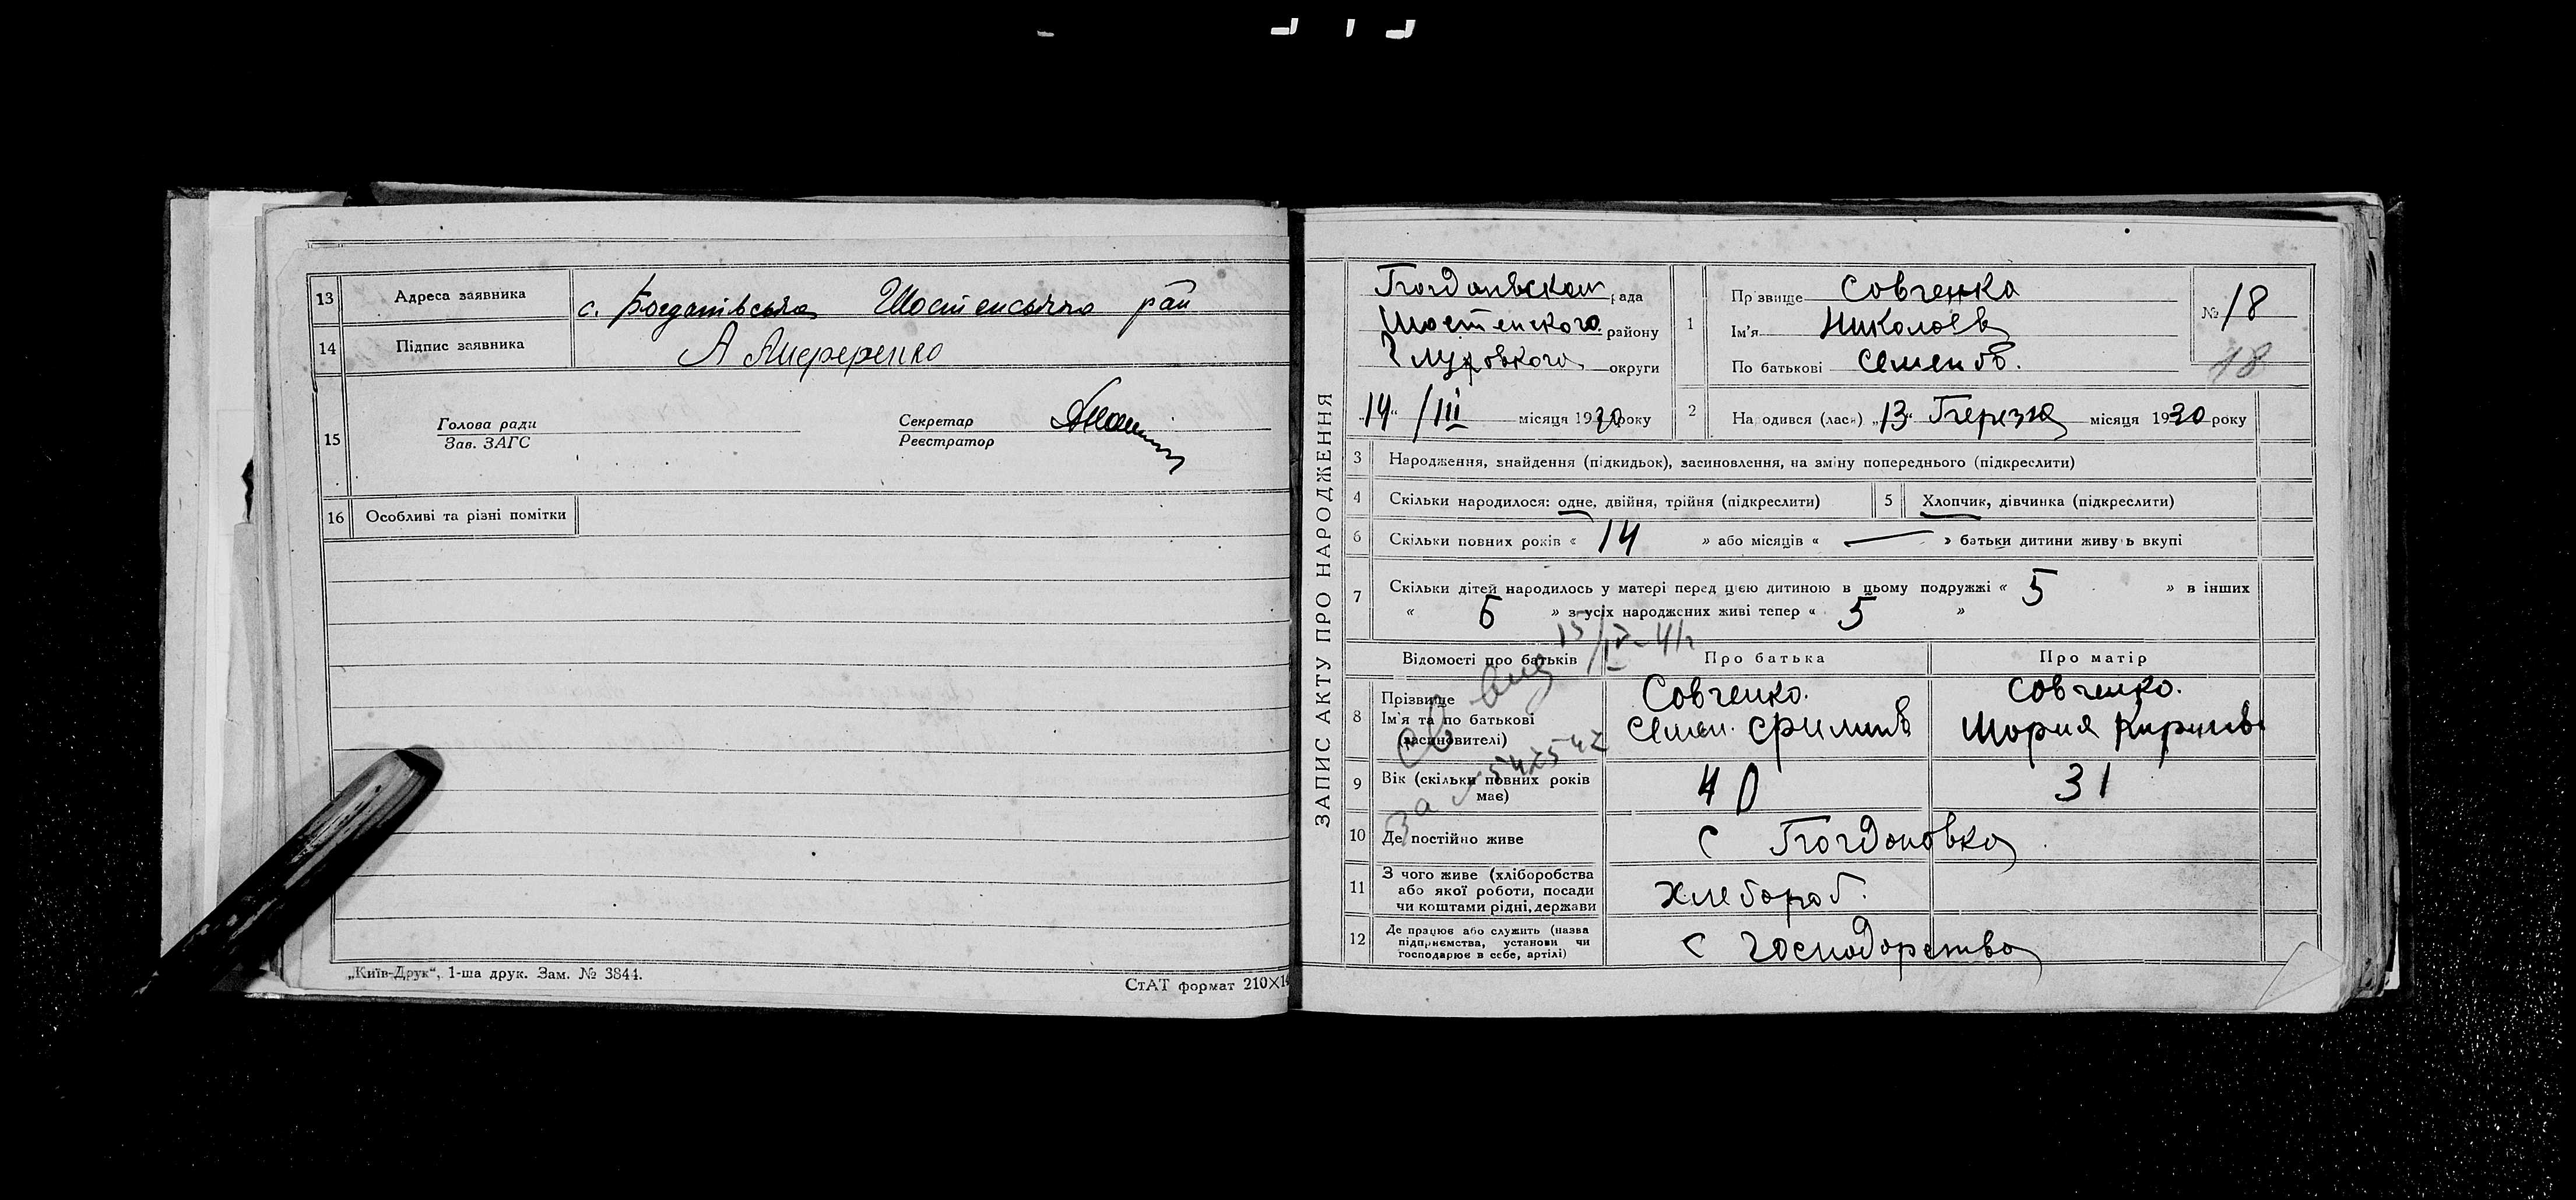 13 Адреса заявника с. Богданівська Шостенського рай
14 Підпис заявника А
15 Голова ради Секретар
Зав. ЗАГС Реєстратор
16 Особливі та різні помітки
„Київ-Друк“, 1-ша друк. Зам. № 3844.
СтАТ формат 210×14
ЗАПИС АКТУ ПРО НАРОДЖЕННЯ
Богдановской рада
Шостенского району
Глуховкого округи
14 “ /III місяця 1930 року
1 Прізвище Совченко
Ім'я Николаев
По батькові Семенов.
№ 18
18
2 Народився (лась) „13“ Березня місяця 1930 року
3 Народження, знайдення (підкидьок), засиновлення, на зміну попереднього (підкреслити)
4 Скільки народилося: одне, двійня, трійня (підкреслити) 5 Хлопчик, дівчинка (підкреслити)
6 Скільки повних років « 14 » або місяців « — » батьки дитини живуть вкупі
7 Скільки дітей народилось у матері перед цією дитиною в цьому подружжі « 5 » в інших
« 5 » з усіх народжених живі тепер « 5 »
Відомості про батьків Про батька Про матір
8 Прізвище Совченко. Совченко.
Ім'я та по батькові Семен. Филип Мория Кирилов
(засиновителі)
9 Вік (скільки повних років має) 40 31
10 Де постійно живе с Богдоновка
11 З чого живе (хліборобства
або якої роботи, посади
чи коштами рідні, держави хлебороб.
12 Де працює або служить (назва
підприємства, установи чи
господарює в себе, артілі) с господорство